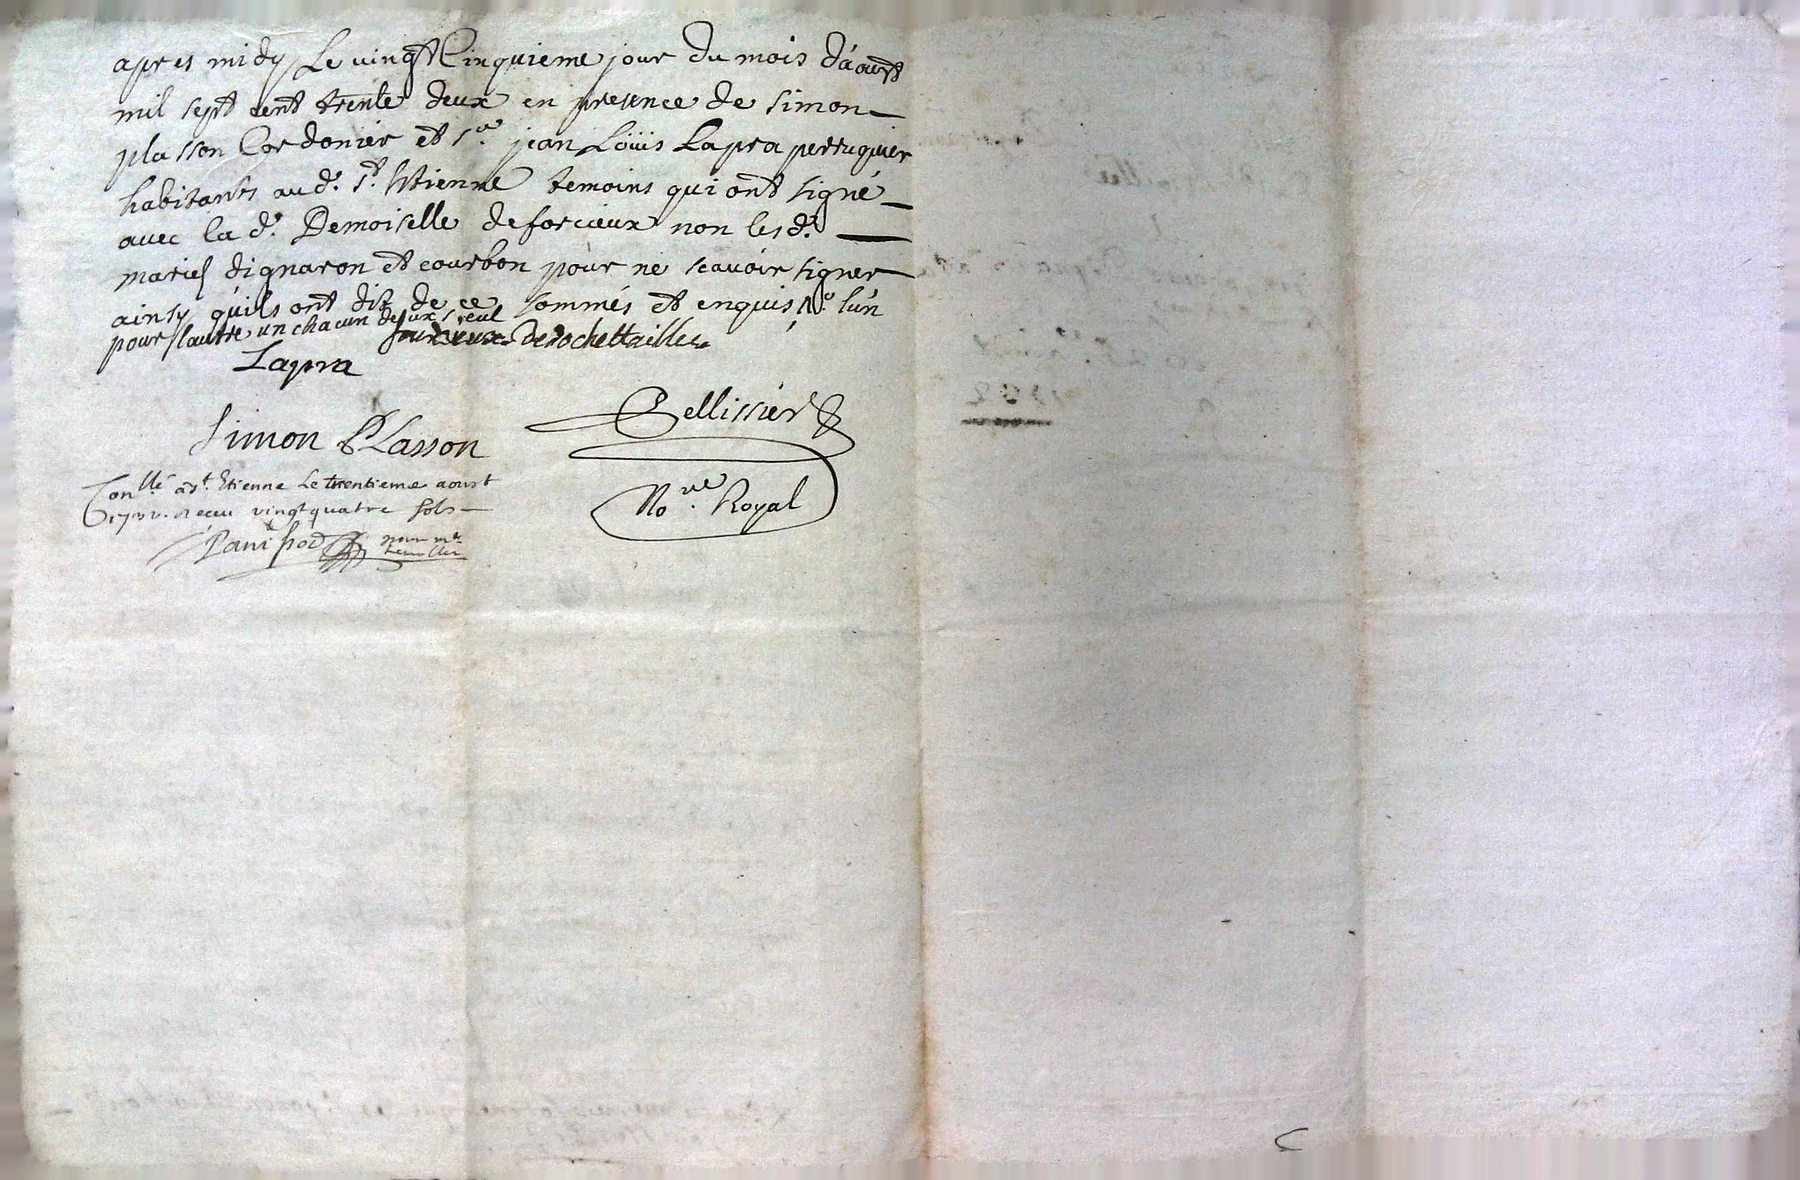 apres midy Le vingt Cinquieme jour du mois d'aoust
mil sept cent trente deux en presence de simon
plasson Cordonier et sr. jean Loüis Lapra perruquier
habitants aud. st. Etienne temoins qui ont signé
avec la d. Demoiselle de forcieux non lesd.
mariés dignaron et courbon pour ne scavoir signer
ainsy qu'ils ont dit de ce sommés et enquis lún
pour lautre un chacun deux seul
forcieux Derochettaillee
Lapra
Simon PLasson
Pellissier
No.re Royal
Con.llé a st. Etienne Le trentieme aoust
1732. receu vingt quatre sols